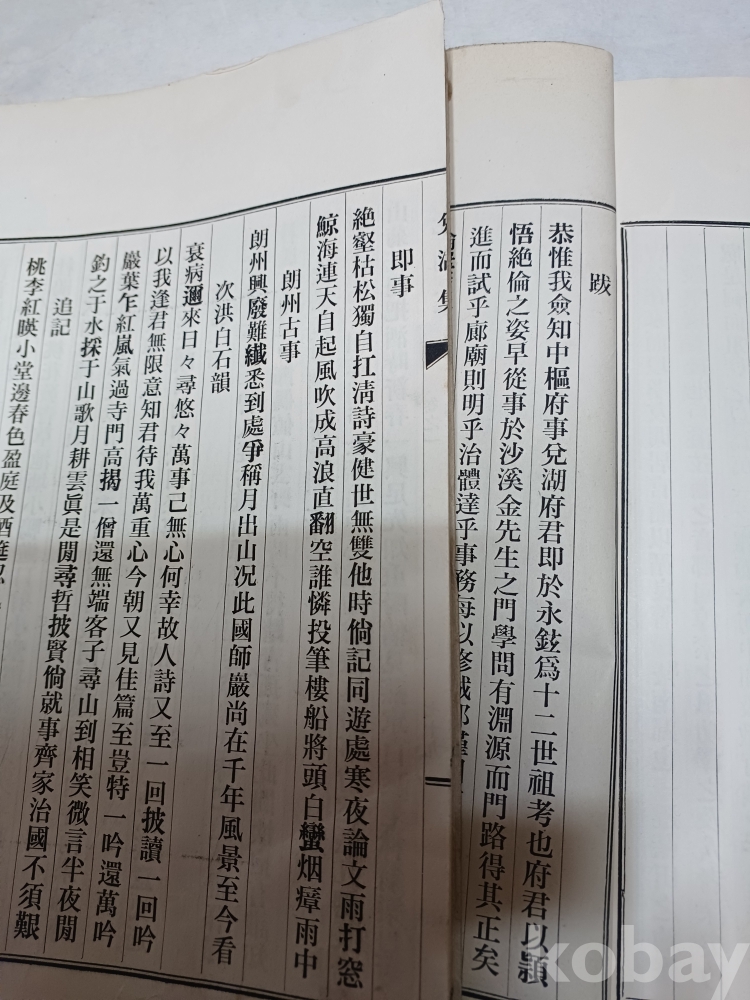 跋
恭惟我僉知中樞府事兌湖府君即於永鉉爲十二世祖考也府君以穎
悟絶倫之姿早從事於沙溪金先生之門學問有淵源而門路得其正矣
進而試乎廊廟則明乎治體達乎事務每以修
集
即事
絶壑枯松獨自扛淸詩豪健世無雙他時倘記同遊處寒夜論文雨打窓
鯨海連天自起風吹成高浪直翻空誰憐投筆樓船將頭白蠻烟瘴雨中
朗州古事
朗州興廢難纎悉到處爭稱月出山况此國師巖尚在千年風景至今看
次洪白石韻
衰病邇來日々尋悠々萬事己無心何幸故人詩又至一回披讀一回吟
以我逢君無限意知君待我萬重心今朝又見佳篇至豈特一吟還萬吟
巖葉乍紅嵐氣過寺門高揭一僧還無端客子尋山到相笑微言半夜閒
釣之于水採于山歌月耕雲眞是閒尋哲披賢倘就事齊家治國不須艱
追記
桃李紅暎小堂邊春色盈庭及酒筵
kobay